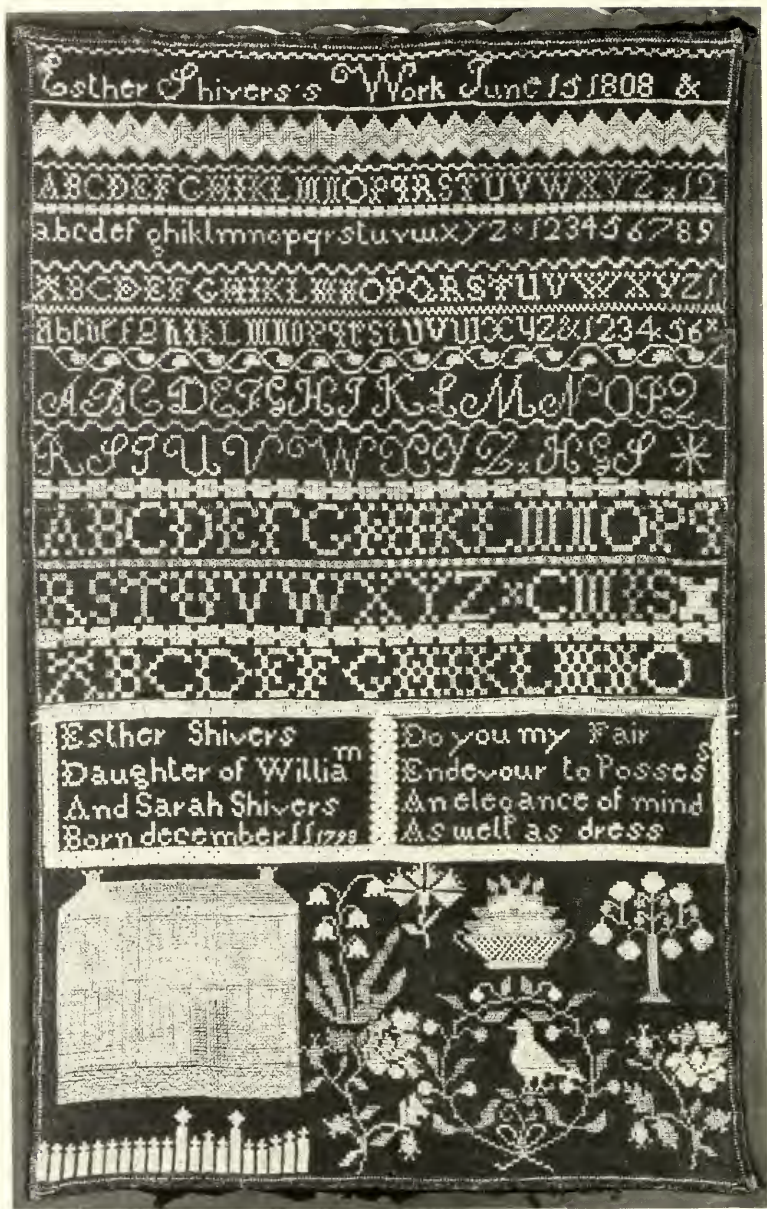 Esther Shivers's Work June 15 1808 &
ABCDEFGHIKLMNOPQRSTUVWXYZ x 12
abcdef ghiklmnopqrstuvwxyz * 123456789
ABCDEFGHIKLMNOPQRSTUVWXYZ1
abcdefghiklmnopqrstuvwxyz&123456*
ABCDEFGHIKLMNOPQ
RSTUVWXYZ x HGS *
ABCDEFGHIKLMNOPq
RSTUVWXYZ x CM S
ABCDEFGHIKLMNO
Esther Shivers
Daughter of William
And Sarah Shivers
Born december 11 1798
Do you my Fair
Endevour to Posses s
An elegance of mind
As well as dress